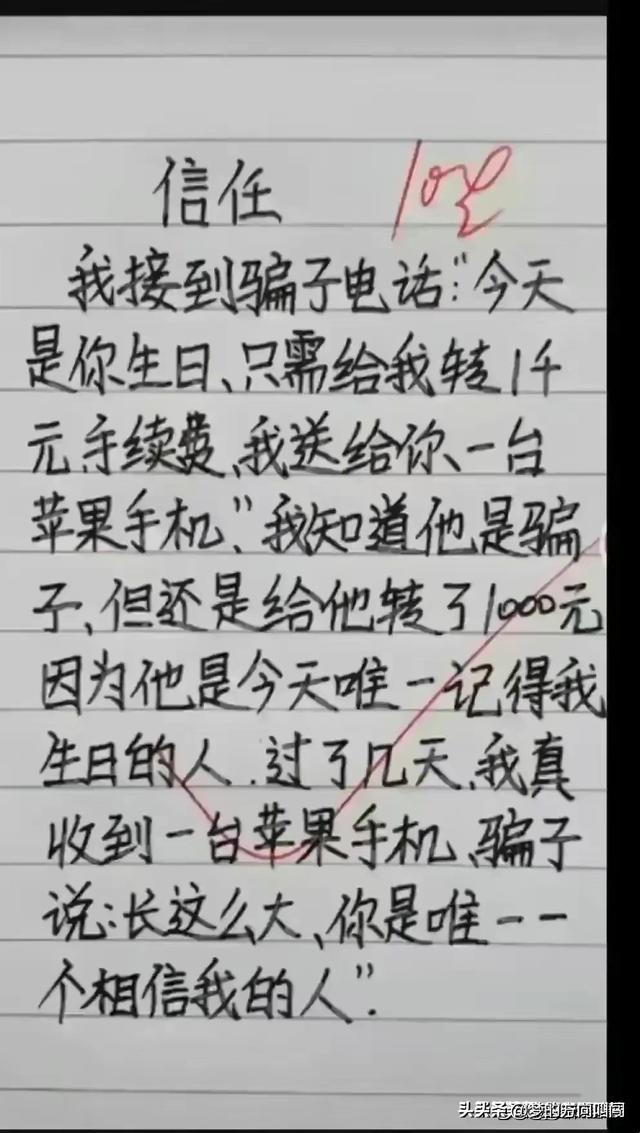 信任
我接到骗子电话:“今天
是你生日、只需给我转1千
元手续费、我送给你一台
苹果手机”、我知道他是骗
子、但还是给他转了1000元
因为他是今天唯一记得我
生日的人.过了几天、我真
收到一台苹果手机、骗子
说:长这么大、你是唯一一
个相信我的人”.